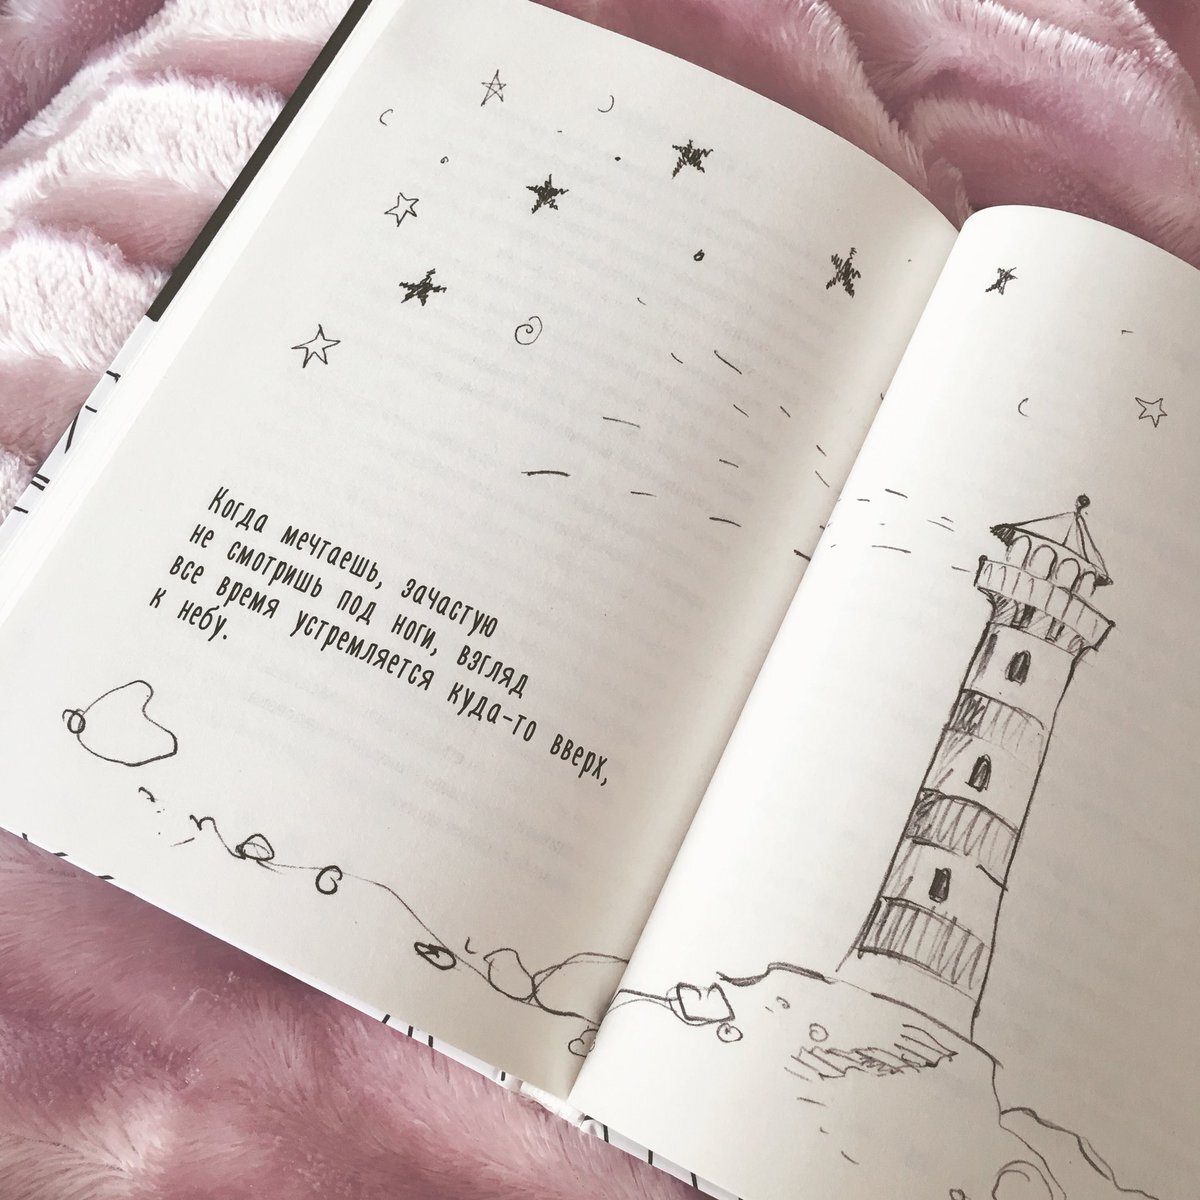 Когда мечтаешь, зачастую
не смотришь под ноги, взгляд
все время устремляется куда-то вверх,
к небу.